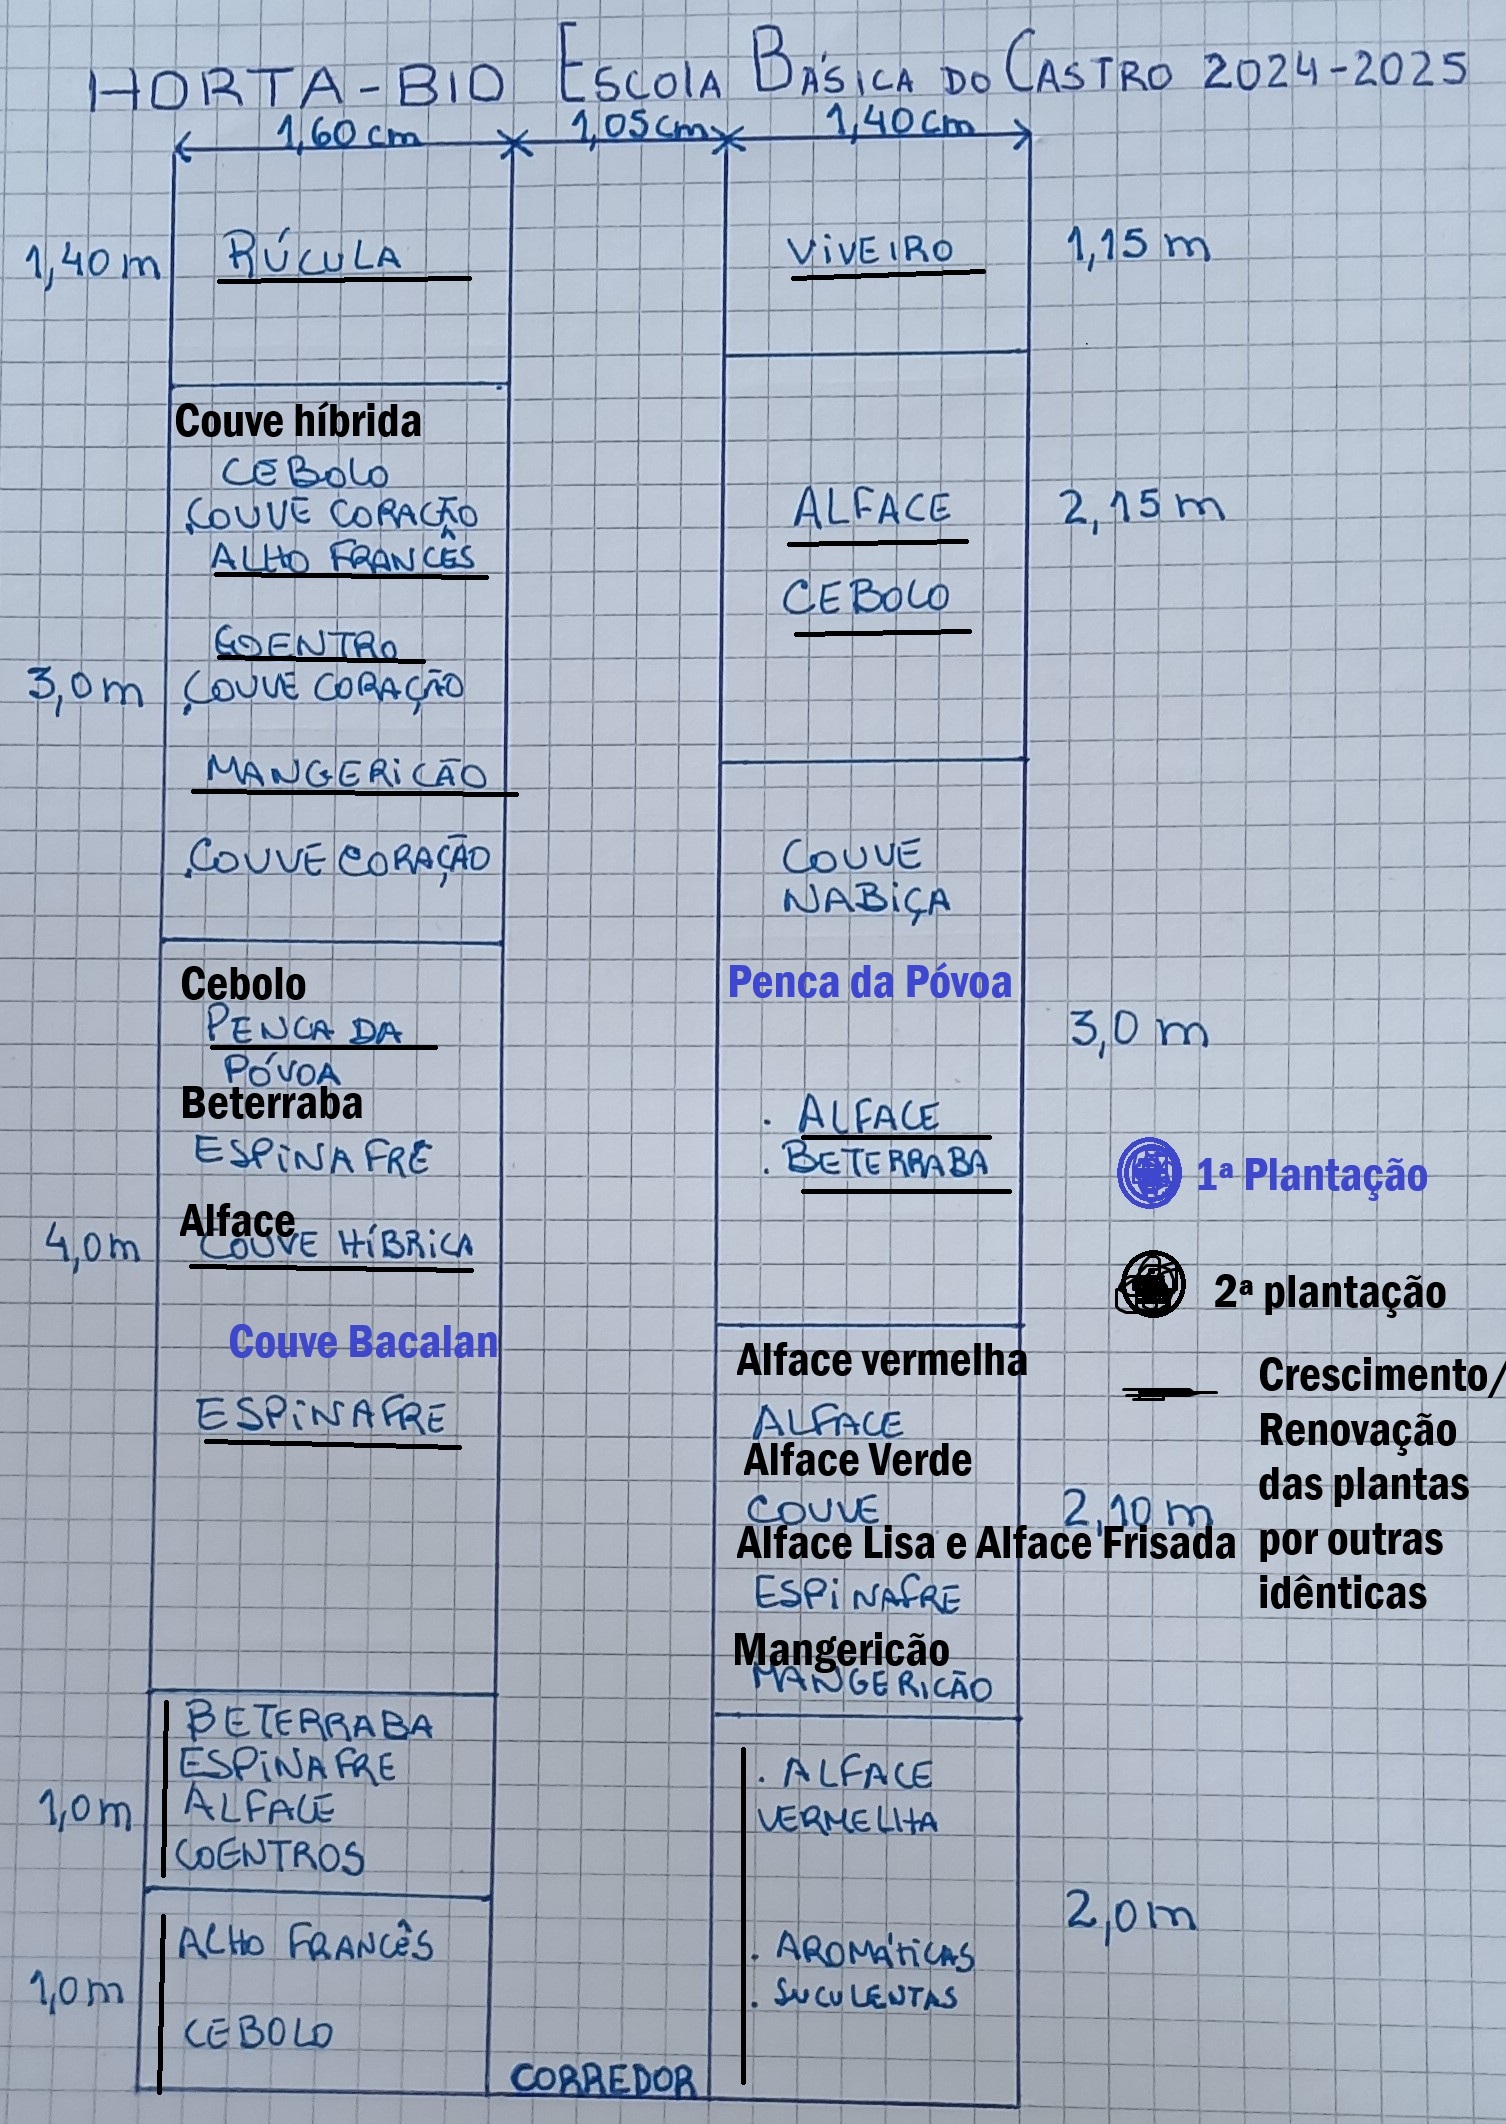 HORTA-BIO ESCOLA BÁSICA DO CASTRO 2024-2025
1,60 cm 1,05 cm 1,40 cm
1,40 m
RÚCULA
Couve híbrida
CEBOLO
COUVE CORAÇÃO
ALHO FRANCÊS
COENTRO
3,0 m
COUVE CORAÇÃO
MANGERICÃO
COUVE CORAÇÃO
Cebolo
PENCA DA
PÓVOA
Beterraba
ESPINAFRE
Alface
4,0 m
COUVE HÍBRICA
Couve Bacalan
ESPINAFRE
BETERRABA
ESPINAFRE
ALFACE
COENTROS
1,0 m
ALHO FRANCÊS
1,0 m
CEBOLO
CORREDOR
VIVEIRO
1,15 m
ALFACE
2,15 m
CEBOLO
COUVE
NABIÇA
Penca da Póvoa
3,0 m
. ALFACE
. BETERRABA
Alface vermelha
ALFACE
Alface Verde
COUVE
2,10 m
Alface Lisa e Alface Frisada
ESPINAFRE
Mangericão
MANGERICÃO
. ALFACE
VERMELHA
2,0 m
. AROMÁTICAS
. SUCULENTAS
1ª Plantação
2ª plantação
Crescimento/
Renovação
das plantas
por outras
idênticas